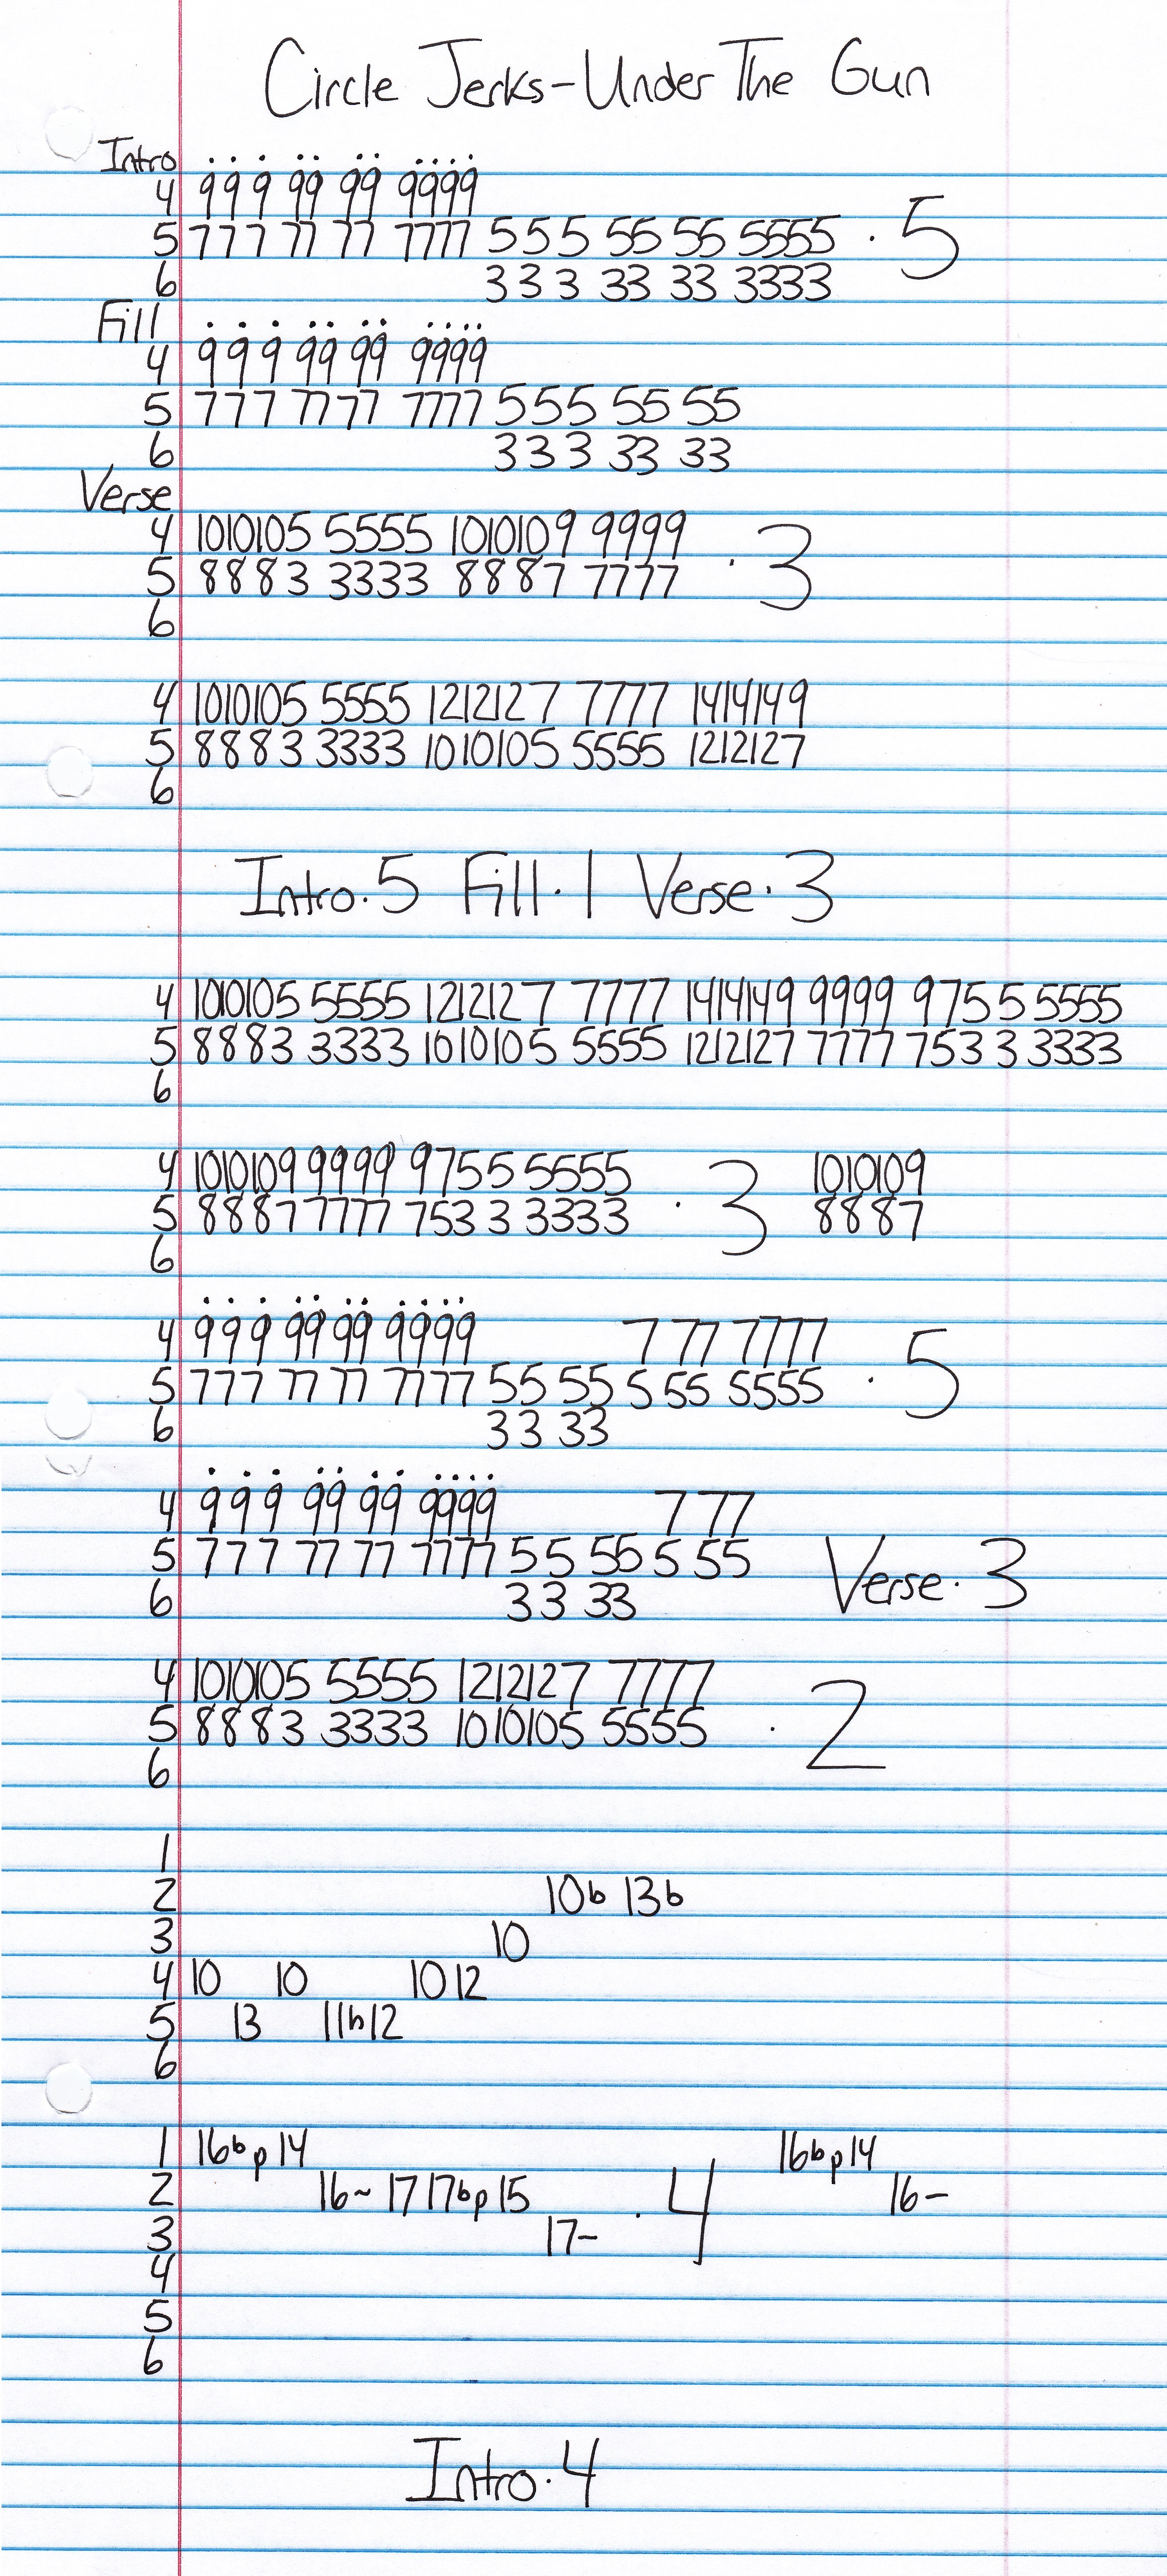 Circle Jerks-Under The Gun
Intro
4 9 9 9 99 99 9999
5 7 7 7 77 77 7777 5 5 5 55 55 5555 · 5
6 3 3 3 33 33 3333
Fill
4 9 9 9 99 99 9999
5 7 7 7 77 77 7777 5 5 5 55 55
6 3 3 3 33 33
Verse
4 1010105 5555 1010109 9999
5 8 8 8 3 3333 8 8 8 7 7777 · 3
6
4 1010105 5555 1212127 7777 1414149
5 8 8 8 3 3333 1010105 5555 1212127
6
Intro·5 Fill·1 Verse·3
4 1010105 5555 1212127 7777 1414149 9999 9755 5555
5 8 8 8 3 3333 1010105 5555 1212127 7777 753 3 3333
6
4 1010109 9999 9755 5555 1010109
5 8 8 8 7 7777 753 3 3333 · 3 8 8 8 7
6
4 9 9 9 99 99 9999 7 77 7777
5 7 7 7 77 77 7777 55 55 5 55 5555 · 5
6 3 3 33
4 9 9 9 99 99 9999 7 77
5 7 7 7 77 77 7777 5 5 55 5 55 Verse·3
6 3 3 33
4 1010105 5555 1212127 7777
5 8 8 8 3 3333 1010105 5555 · 2
6
1
2 10b 13b
3 10
4 10 10 10 12
5 13 11h12
6
1 16b p 14 16b p 14
2 16~ 17 17b p 15 · 4 16-
3 17-
4
5
6
Intro·4